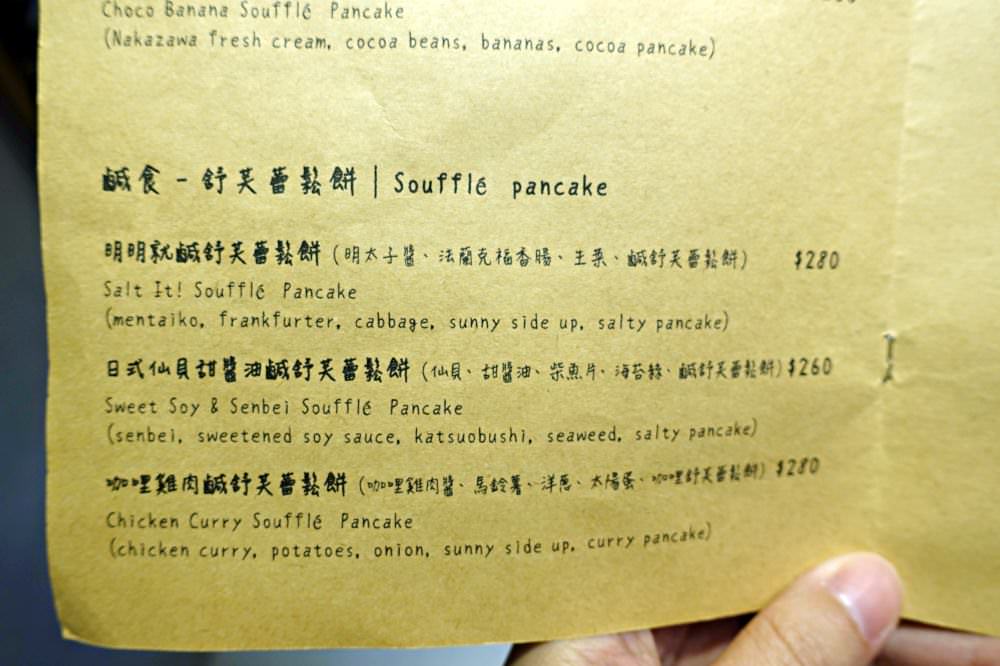 Choco Banana Soufflé Pancake
(Nakazawa fresh cream, cocoa beans, bananas, cocoa pancake)
鹹食 - 舒芙蕾鬆餅 | Soufflé pancake
明明就鹹舒芙蕾鬆餅 (明太子醬、法蘭克福香腸、生菜、鹹舒芙蕾鬆餅) $280
Salt It! Soufflé Pancake
(mentaiko, frankfurter, cabbage, sunny side up, salty pancake)
日式仙貝甜醬油鹹舒芙蕾鬆餅 (仙貝、甜醬油、柴魚片、海苔絲、鹹舒芙蕾鬆餅) $260
Sweet Soy & Senbei Soufflé Pancake
(senbei, sweetened soy sauce, katsuobushi, seaweed, salty pancake)
咖哩雞肉鹹舒芙蕾鬆餅 (咖哩雞肉醬、馬鈴薯、洋蔥、太陽蛋、咖哩舒芙蕾鬆餅) $280
Chicken Curry Soufflé Pancake
(chicken curry, potatoes, onion, sunny side up, curry pancake)